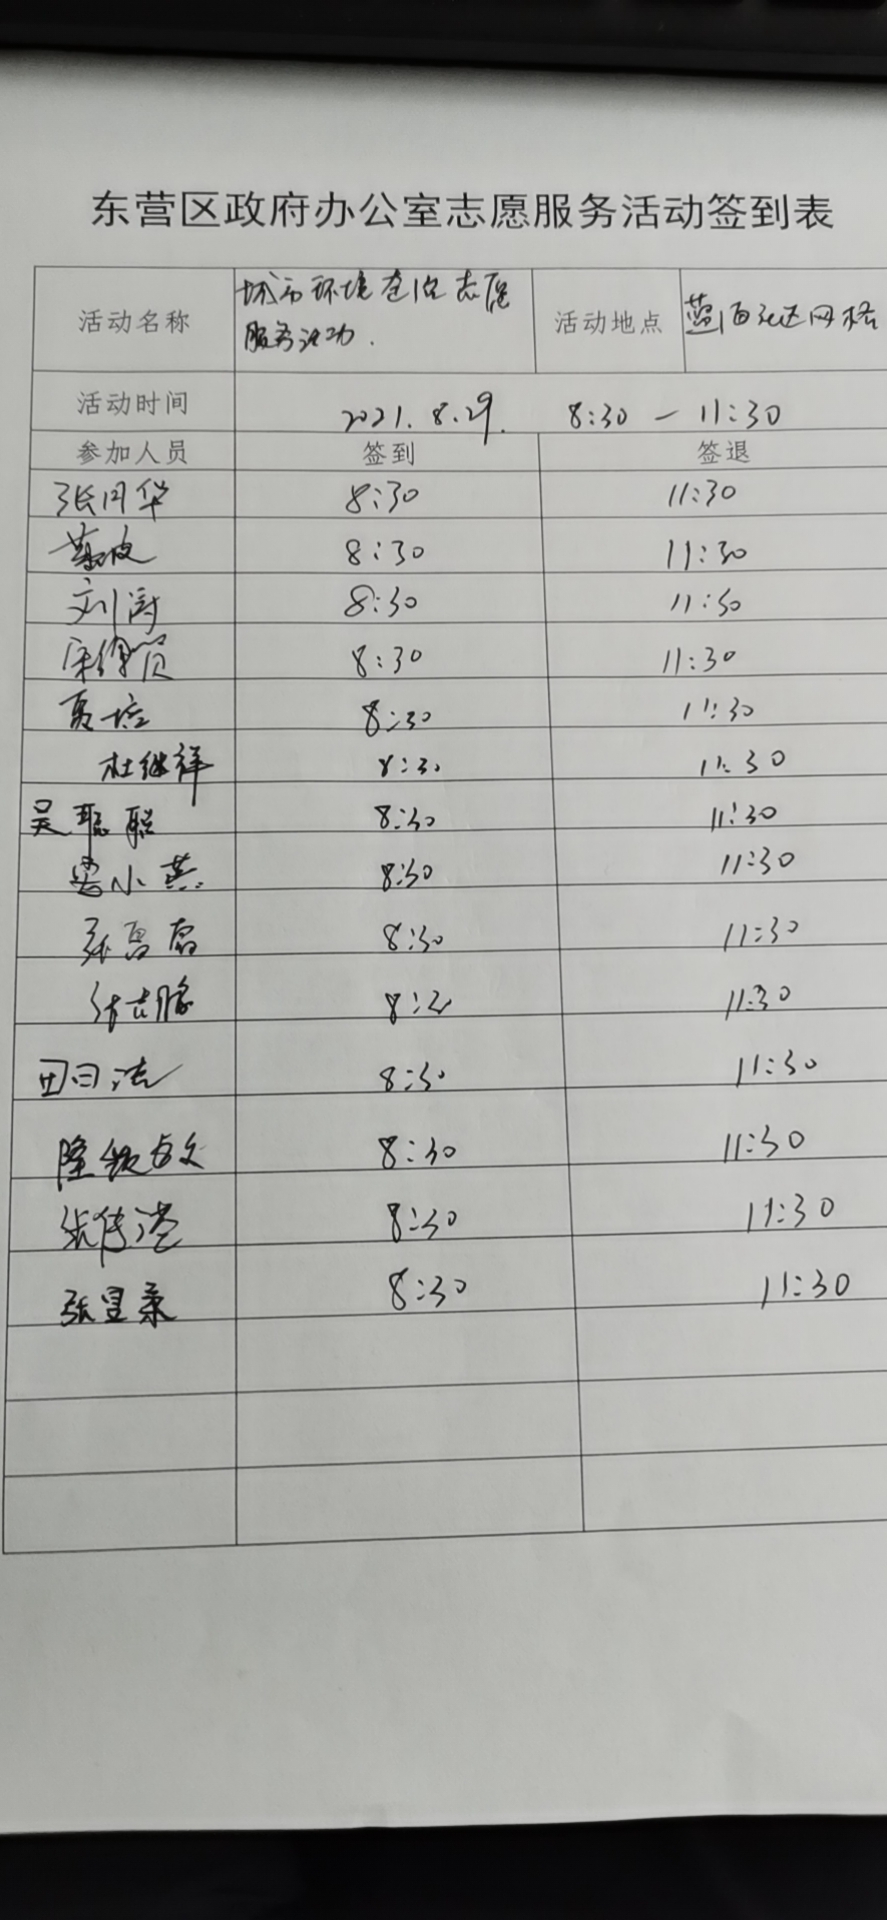 东营区政府办公室志愿服务活动签到表
活动名称 城市环境整治志愿服务活动. 活动地点 网格
活动时间 2021.8.29. 8:30 — 11:30
参加人员 签到 签退
张月华 8:30 11:30
8:30 11:30
刘涛 8:30 11:30
8:30 11:30
夏培 8:30 11:30
杜继祥 8:30 11:30
吴聪聪 8:30 11:30
小燕 8:30 11:30
张 8:30 11:30
张志腾 8:30 11:30
田曰法 8:30 11:30
隆 8:30 11:30
张传港 8:30 11:30
张昱柔 8:30 11:30